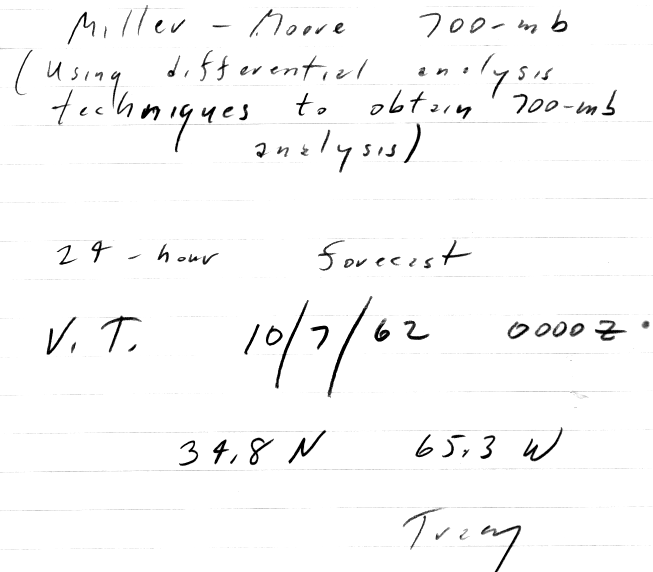 Miller - Moore 700-mb
(Using differential analysis
techniques to obtain 700-mb
analysis)
24-hour forecast
V.T. 10/7/62 0000Z.
34.8 N 65.3 W
Tracy